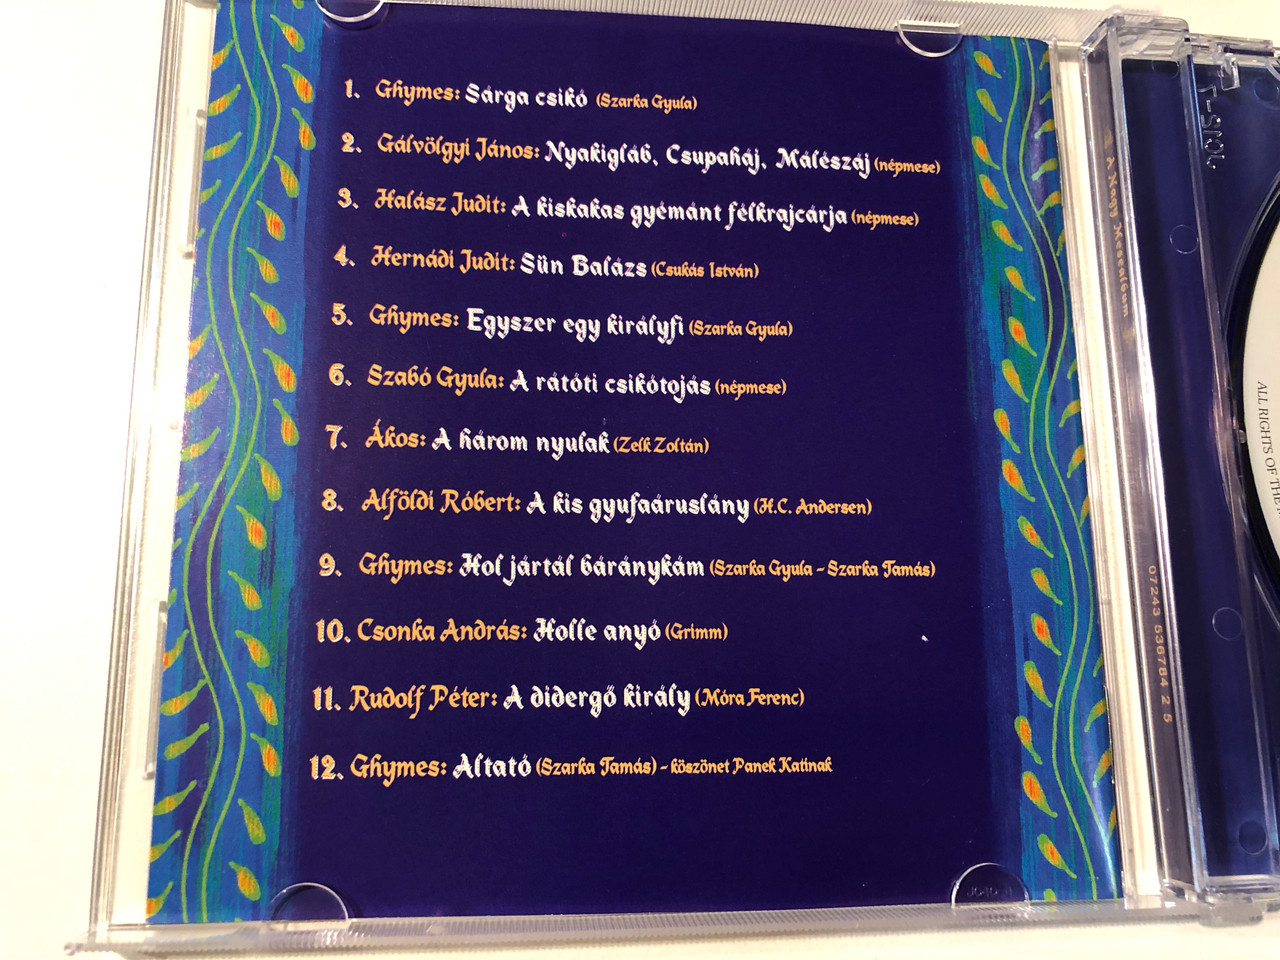 1. Ghymes: Sárga csikó (Szarka Gyula)
2. Gálvölgyi János: Nyakigláb, Csupaháj, Málészáj (népmese)
3. Halász Judit: A kiskakas gyémánt félkrajcárja (népmese)
4. Hernádi Judit: Sün Balázs (Csukás István)
5. Ghymes: Egyszer egy királyfi (Szarka Gyula)
6. Szabó Gyula: A rátóti csikótojás (népmese)
7. Ákos: A három nyulak (Zelk Zoltán)
8. Alföldi Róbert: A kis gyufaáruslány (H.C. Andersen)
9. Ghymes: Hol jártál báránykám (Szarka Gyula - Szarka Tamás)
10. Csonka András: Holle anyó (Grimm)
11. Rudolf Péter: A didergő király (Móra Ferenc)
12. Ghymes: Altató (Szarka Tamás) - köszönet Panek Katinak
A Nagy Mesealbum
07243 536784 2 5
ALL RIGHTS OF THE